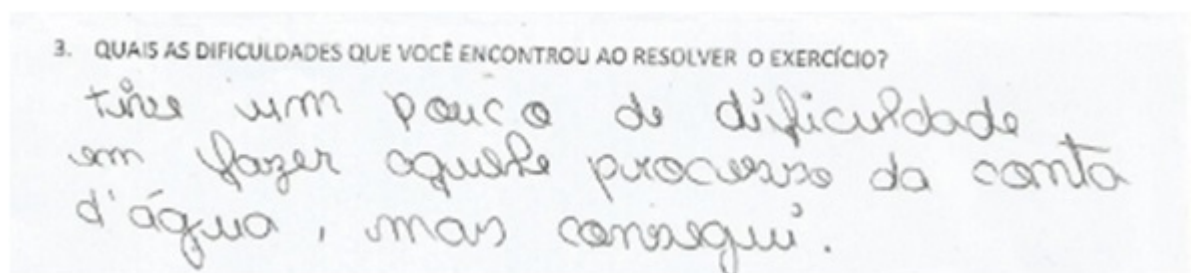 3. QUAIS AS DIFICULDADES QUE VOCÊ ENCONTROU AO RESOLVER O EXERCÍCIO?
tive um pouco de dificuldade
em fazer aquele processo da conta
d'água, mas consegui.